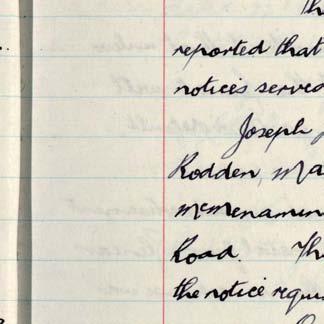 Th
reported that
notices served
Joseph
Rodden, Ma
McMenamin
Road. Th
the notice requi